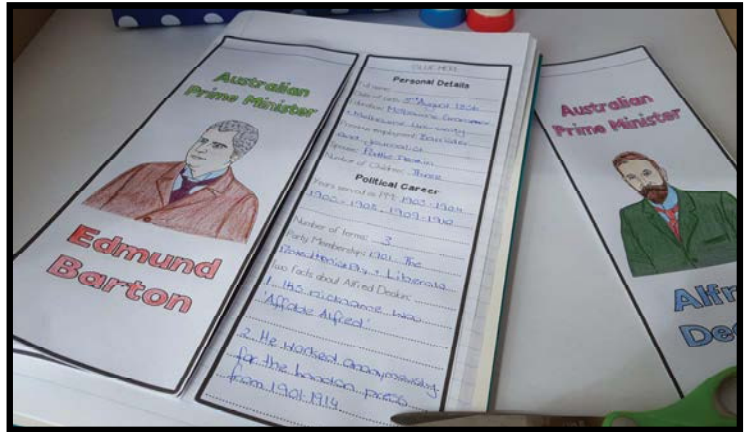 Australian
Prime Minister
Edmund
Barton
GLUE HERE
Personal Details
Full name:
Date of birth: 3rd August 1856
Education: Melbourne Grammar
+ Melbourne University
Previous employment: Barrister
and Journalist
Spouse: Pattie Deakin
Number of Children: Three
Political Career
Years served as PM: 1903-1904
1905-1908, 1909-1910
Number of terms: 3
Party Membership: 1901 The
Protectionist Party, Liberals
Two Facts about Alfred Deakin:
1. His nickname was
'Affable Alfred'
2. He worked anonymously
for the London press
from 1901-1914
Australian
Prime Minister
Alfr
De